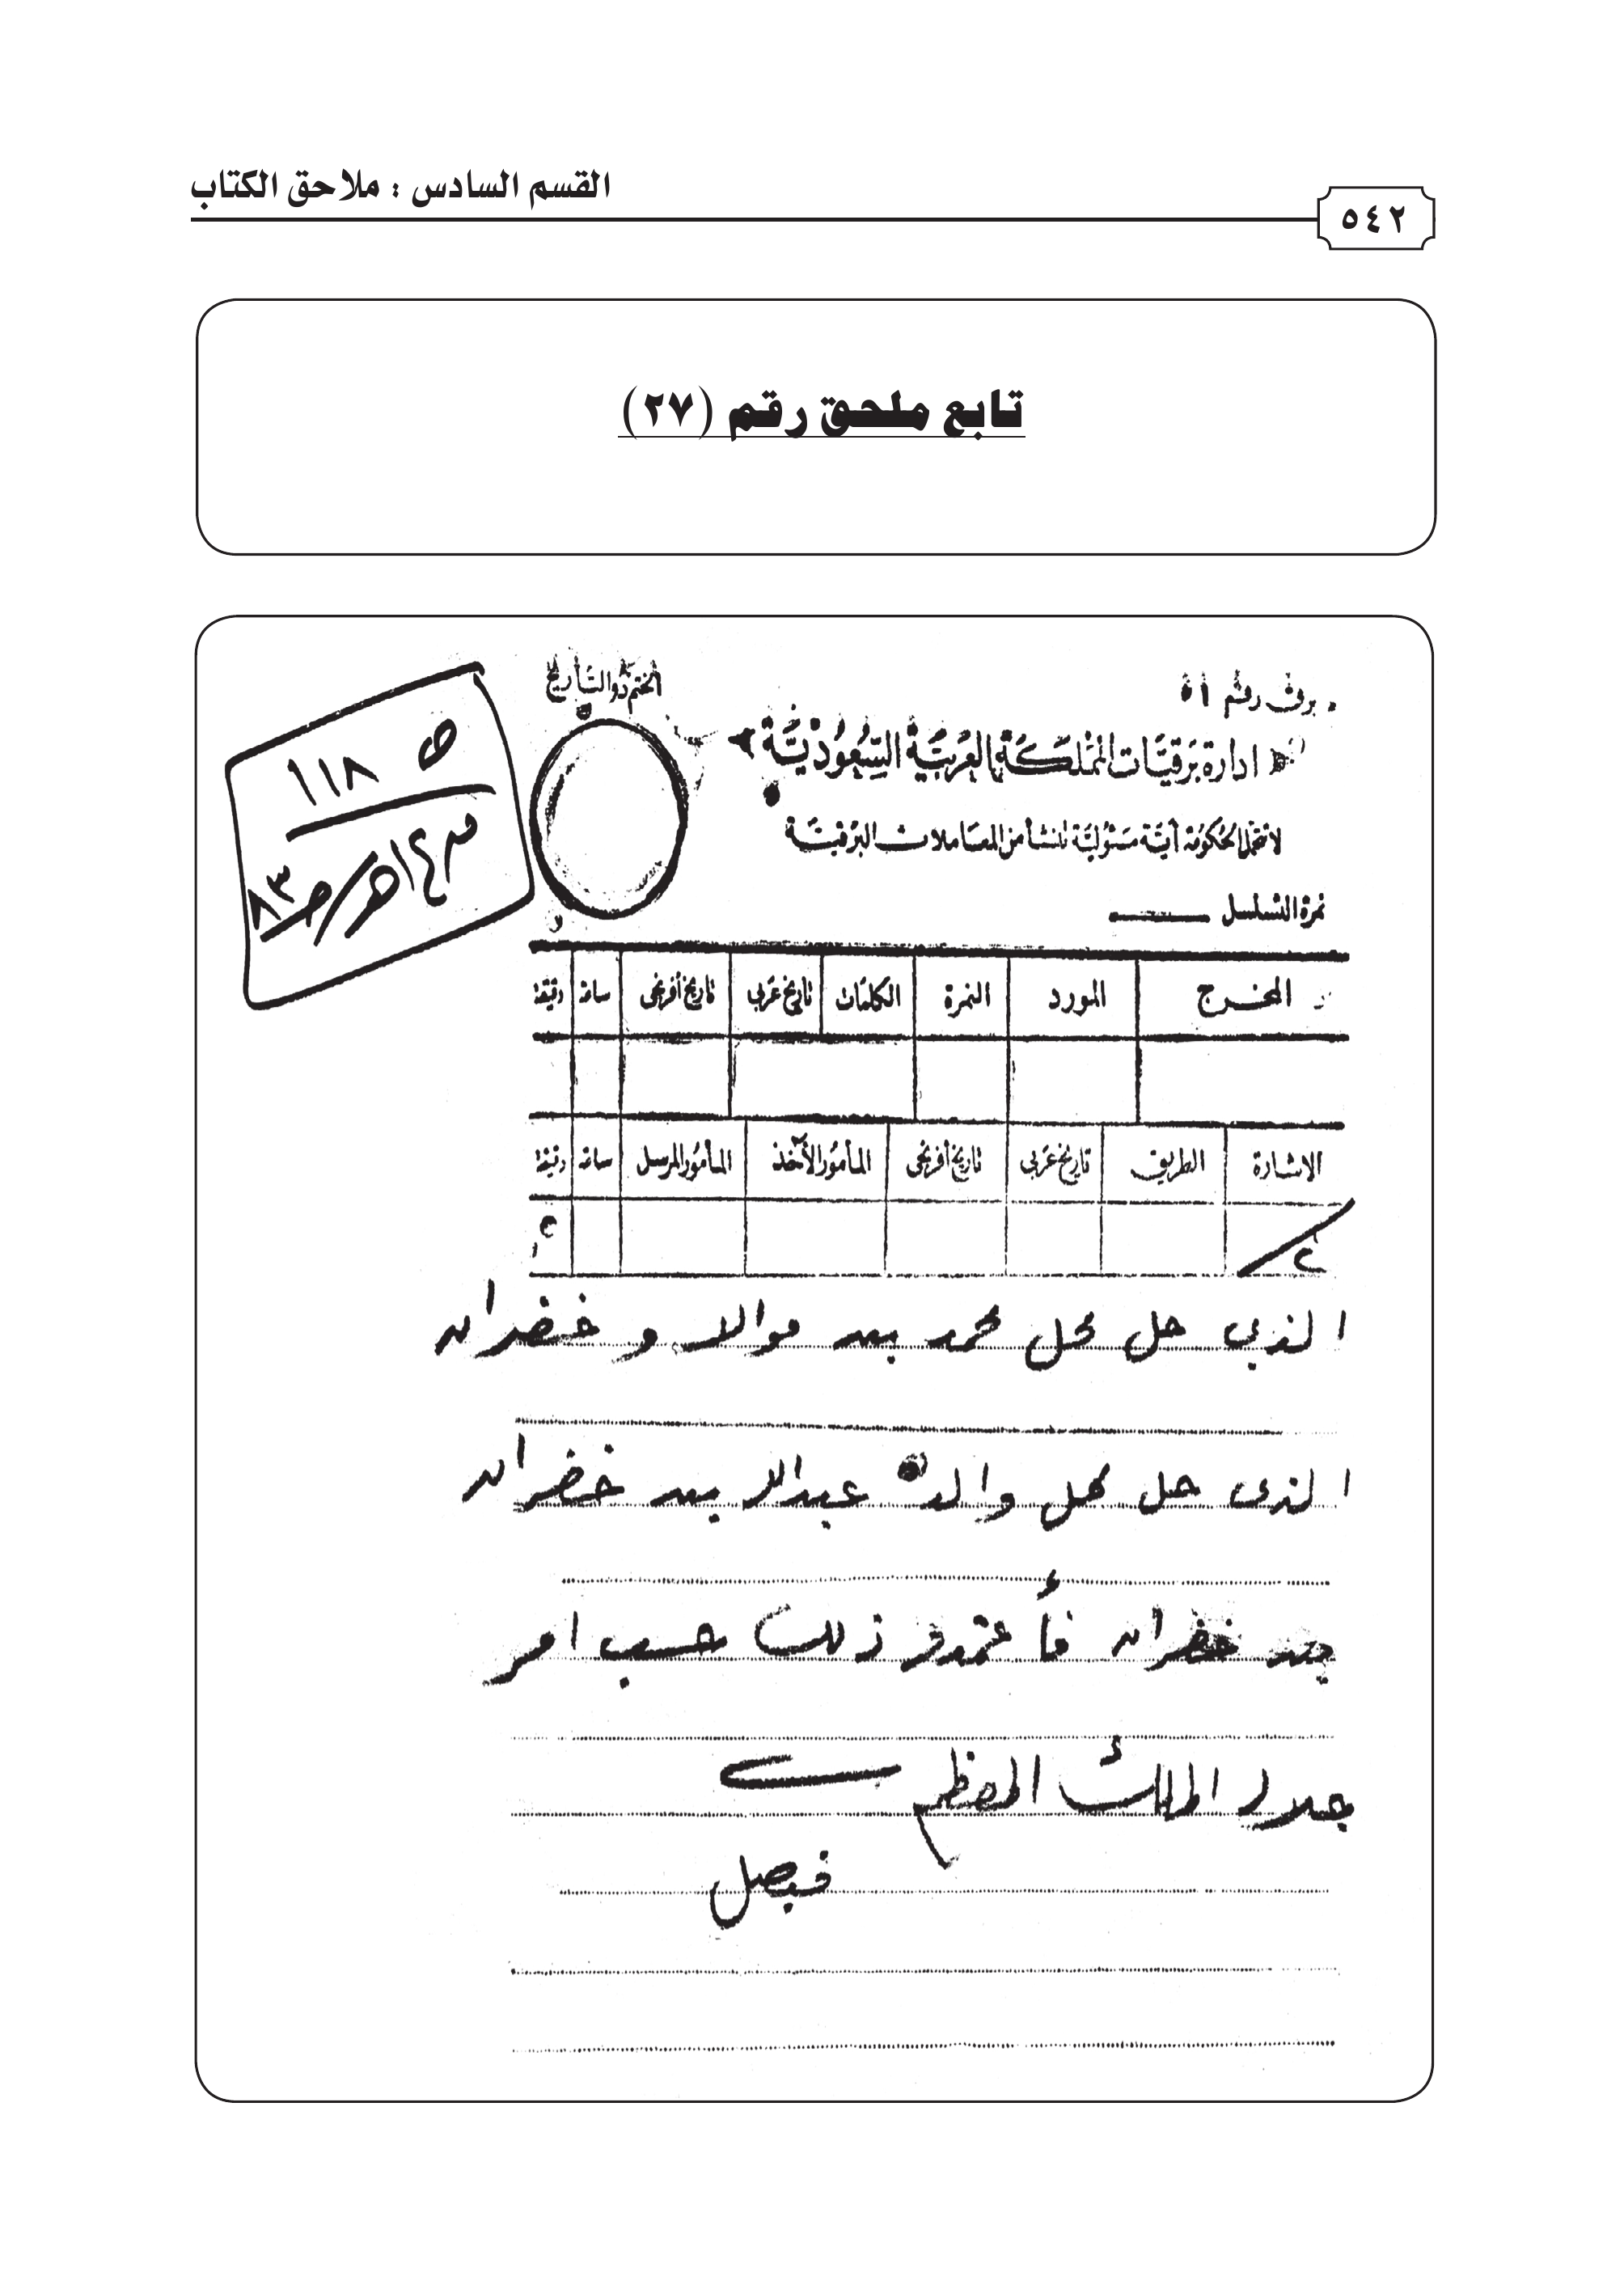 القسم السادس : ملاحق الكتاب
٥٤٢
تابع ملحق رقم (٢٧)
برق رقم ٥١
الختم ذو التاريخ
ادارة برقيات المملكة العربية السعودية
لا تتحمل الحكومة أية مسئولية تنشأ من المعاملات البرقية
نمرة التسلسل
ص ١١٨
٨٣
المخرج المورد النمرة الكلمات تاريخ عربي تاريخ أفرنجي ساعة دقيقة
الاشارة الطريق تاريخ عربي تاريخ أفرنجي المأمور الآخذ المأمور المرسل ساعة دقيقة
٢
الذي حل محل محمد بن موالا و خضران
الذي حل محل والده عبدالا بن خضران
بن خضران فأعتمدو ذلك حسب امر
جلالة الملك المعظم
فيصل